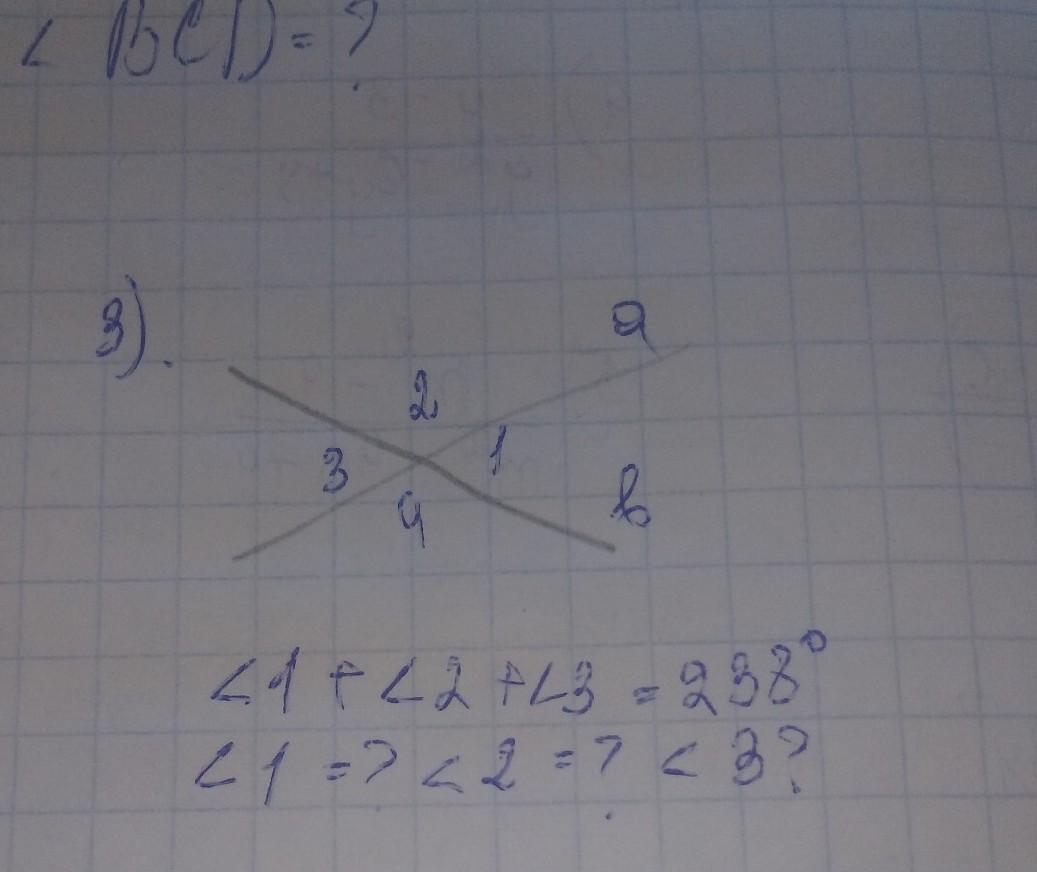 < BCD = ?
3).
a
2
1
3
4
b
<1 + <2 + <3 = 238°
<1 = ? <2 = ? <3?